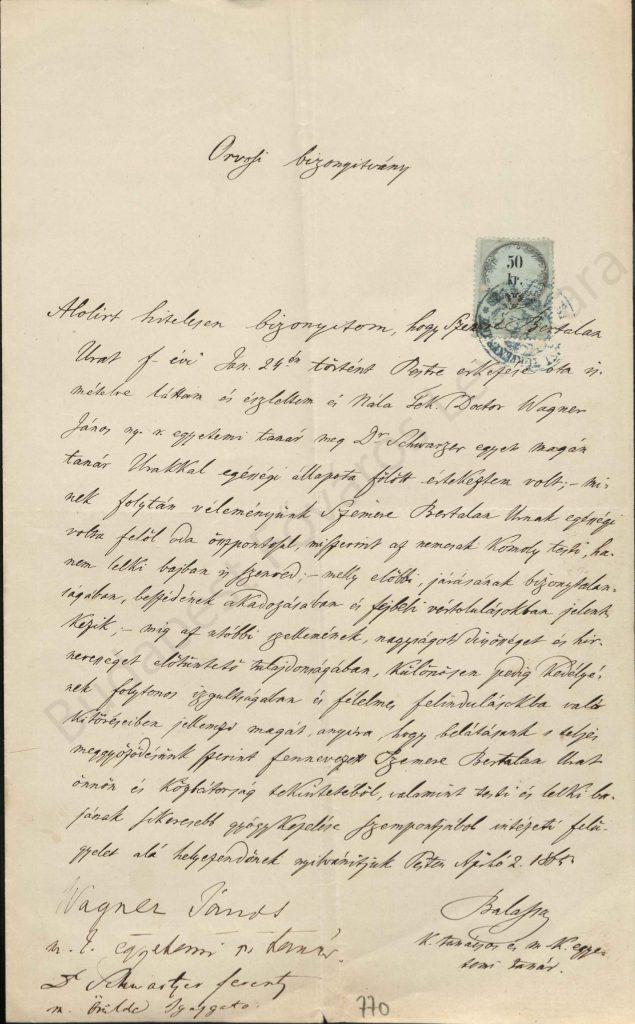 Orvosi bizonyitvány
50
kr.
Alolirt hitelesen bizonyitom, hogy Szemere Bertalan
Urat f. évi Jan. 24én történt Pestre érkezése óta is-
mételve láttam és észleltem és Nála Tek. Doctor Wagner
János ny. r. egyetemi tanár meg Dr Schwarzer egyet. magán
tanár Urakkal egésségi állapota fölött értekeztem volt; – mi-
nek folytán véleményünk Szemere Bertalan Urnak egésségi
volta felöl oda összpontosul, misszerint az nemcsak Komoly testi, ha-
nem lelki bajban is szenved; – melly elöbbi, járásának bizonytalan-
ságában, beszédének akadozásában és fejbeli vértolulásokban jelent-
kezik, – mig az utóbbi szellemének, nagyságot, dicsöséget és hir-
nevességet elötüntetö tulajdonságában, különösen pedig Kedélyé-
nek folytonos izgultságában és félelmes felindulásokba való
kitöréseiben jellemzi magát, annyira hogy belátásunk s teljes
meggyözödésünk szerint fennevezett Szemere Bertalan Urat
önnön és Közbátorság tekintetéböl, valamint testi és lelki ba-
jának sikeresebb gyógykezelése szempontjából intézeti felü-
gyelet alá helyezendönek nyilvánitjuk Pesten April 2. 1865
Wagner János
n. r. egyetemi ny. tanár.
Dr Schwartzer Ferentz
m. Örülde Igazgato.
Balassa
K. tanácsos és m. K. egye-
temi tanár.
770